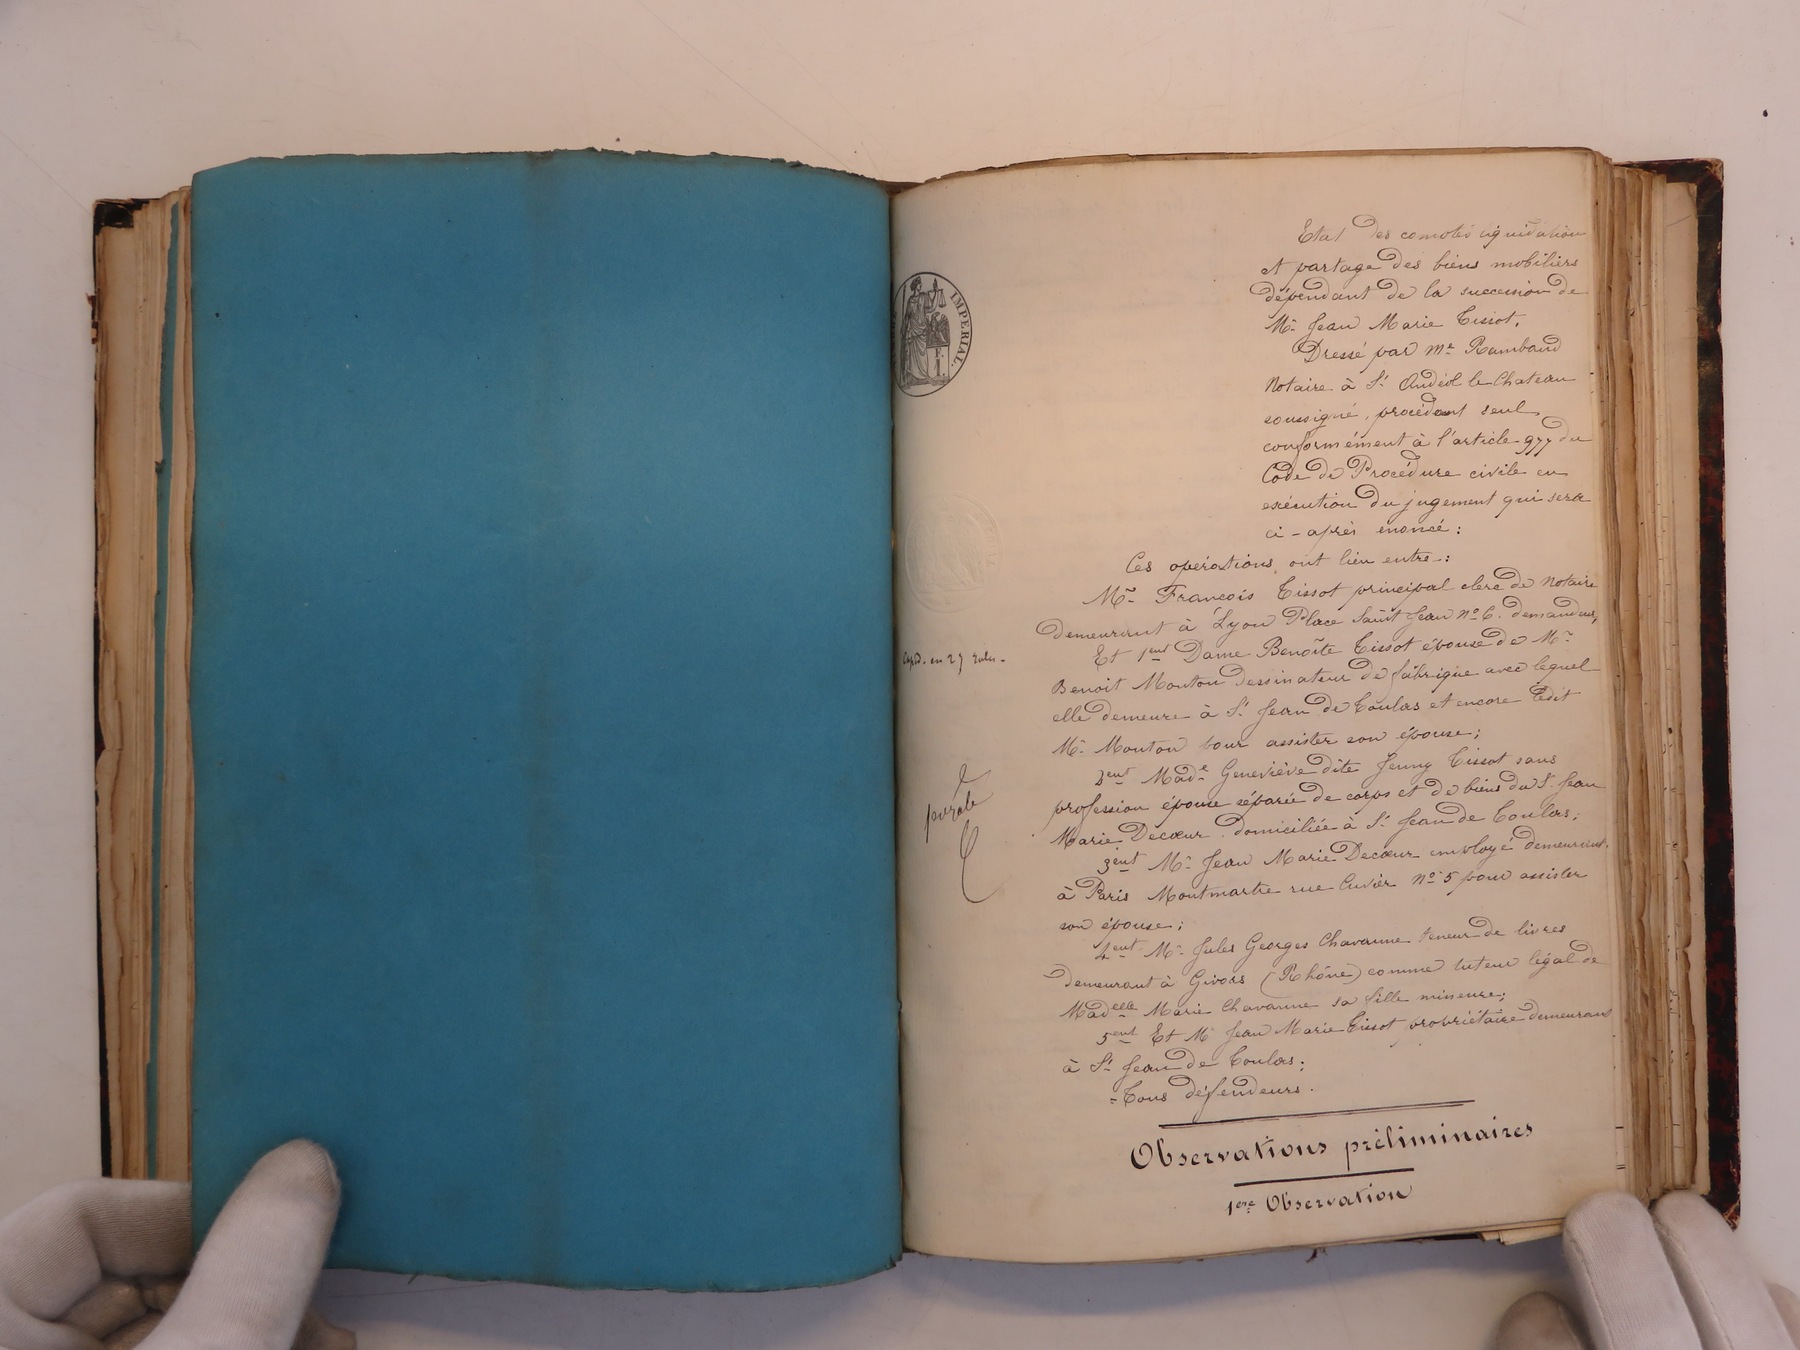 Etat des comptes liquidation
et partage des biens mobiliers
dépendant de la succession de
Mr. Jean Marie Tissot.
Dressé par Me Rambaud
Notaire à St Andéol le Chateau
soussigné, procédant seul
conformément à l'article 977 du
Code de Procédure civile en
exécution du jugement qui sera
ci-après énoncé :
Ces opérations, ont lieu entre :
IMPERIAL.
Mr. François Tissot principal clerc de Notaire
demeurant à Lyon Place Saint Jean No 6. demandeur,
Et 1ent Dame Benoîte Tissot épouse de Mr
Expéd. en 27 roles
Benoit Mouton dessinateur de fabrique avec lequel
elle demeure à St Jean de Toulas et encore ledit
Mr. Mouton pour assister son épouse;
2ent Made Geneviève dite Jenny Tissot sans
profession épouse séparée de corps et de biens du Sr Jean
Marie Decœur domiciliée à St Jean de Toulas;
3ent Mr. Jean Marie Decœur employé demeurant
à Paris Montmartre rue Cuvier No 5 pour assister
son épouse;
4ent Mr. Jules Georges Chavanne teneur de livres
demeurant à Givors (Rhône) comme tuteur légal de
Madelle Marie Chavanne sa fille mineure;
5ent Et Mr Jean Marie Tissot propriétaire demeurant
à St Jean de Toulas;
Tous défendeurs.
Observations préliminaires
1ère Observation